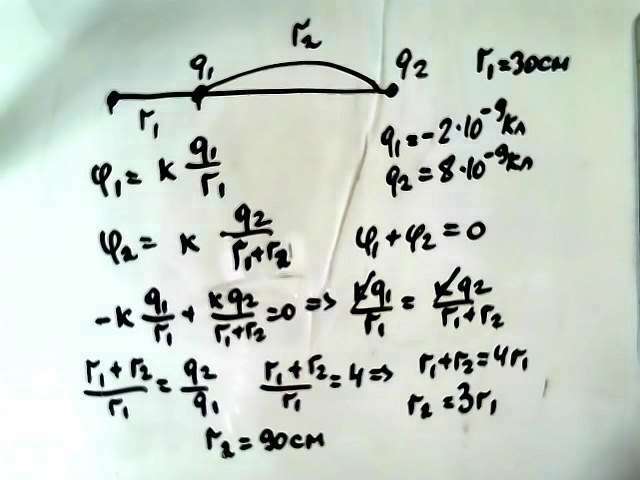 r₂
q₁ q₂ r₁=30см
r₁
q₁=-2·10⁻⁹кл
φ₁= к q₁/r₁ q₂=8·10⁻⁹кл
φ₂= к q₂/(r₁+r₂) φ₁+φ₂=0
-к q₁/r₁ + кq₂/(r₁+r₂)=0 => кq₁/r₁ = кq₂/(r₁+r₂)
(r₁+r₂)/r₁ = q₂/q₁ (r₁+r₂)/r₁=4=> r₁+r₂=4r₁
r₂=3r₁
r₂=90см